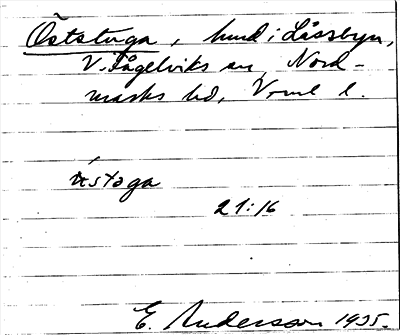 Öststuga, hmd i Låssbyn,
V. Fågelviks sn, Nord-
marks hd, Vrml l.
ùstoga
21:16
E. Anderson 1935.